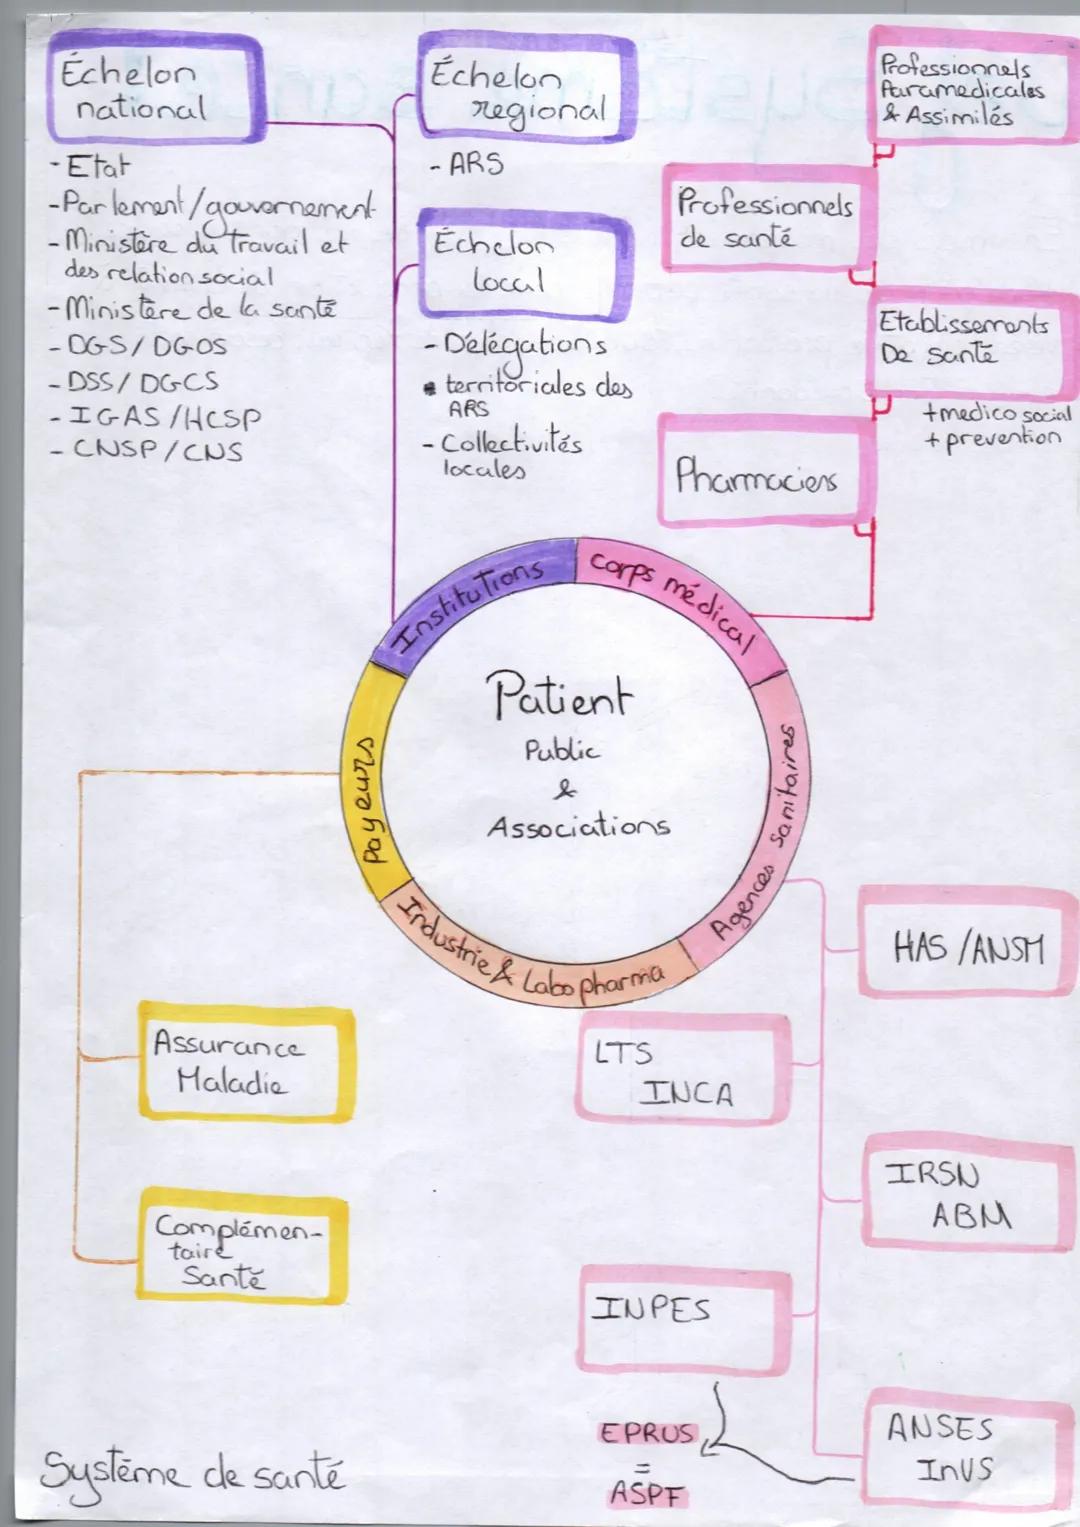 Échelon
national
- Etat
- Parlement/gouvernement
- Ministère du Travail et
des relation social
- Ministère de la santé
- DGS/DGOS
- DSS/DGCS
- IGAS/HCSP
- CNSP/CNS
Échelon
regional
- ARS
Échelon
local
- Délégations
territoriales des
ARS
- Collectivités
locales
Professionnels
Paramedicales
& Assimilés
Professionnels
de santé
Etablissements
De santé
+medico social
+ prevention
Pharmaciens
Institutions
Corps médical
Agences sanitaires
Industrie & Labo pharma
Payeurs
Patient
Public
&
Associations
Assurance
Maladie
Complémen-
taire
Santé
HAS/ANSM
LTS
INCA
IRSN
ABM
INPES
ANSES
InVS
EPRUS
=
ASPF
Système de santé